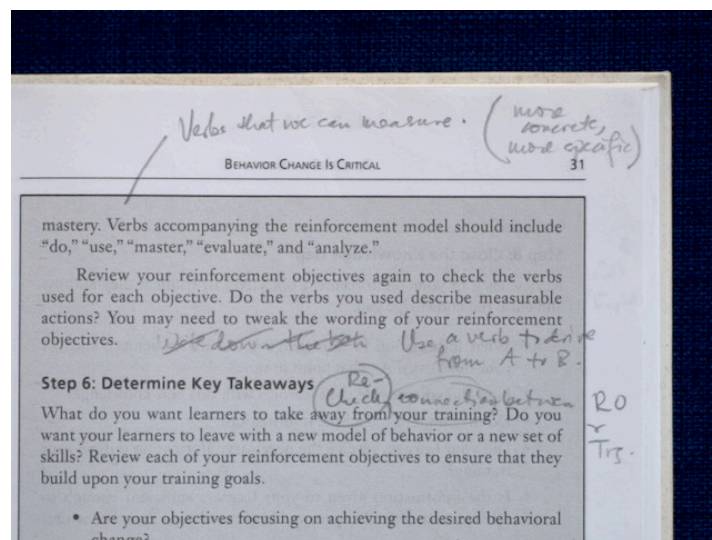 Verbs that we can measure. (more
concrete,
more specific)
BEHAVIOR CHANGE IS CRITICAL 31
mastery. Verbs accompanying the reinforcement model should include
“do,” “use,” “master,” “evaluate,” and “analyze.”
Review your reinforcement objectives again to check the verbs
used for each objective. Do the verbs you used describe measurable
actions? You may need to tweak the wording of your reinforcement
objectives. Use a verb to drive
from A to B.
Step 6: Determine Key Takeaways
Re-
check connection between RO
What do you want learners to take away from your training? Do you
want your learners to leave with a new model of behavior or a new set of
skills? Review each of your reinforcement objectives to ensure that they
build upon your training goals.
• Are your objectives focusing on achieving the desired behavioral
change?